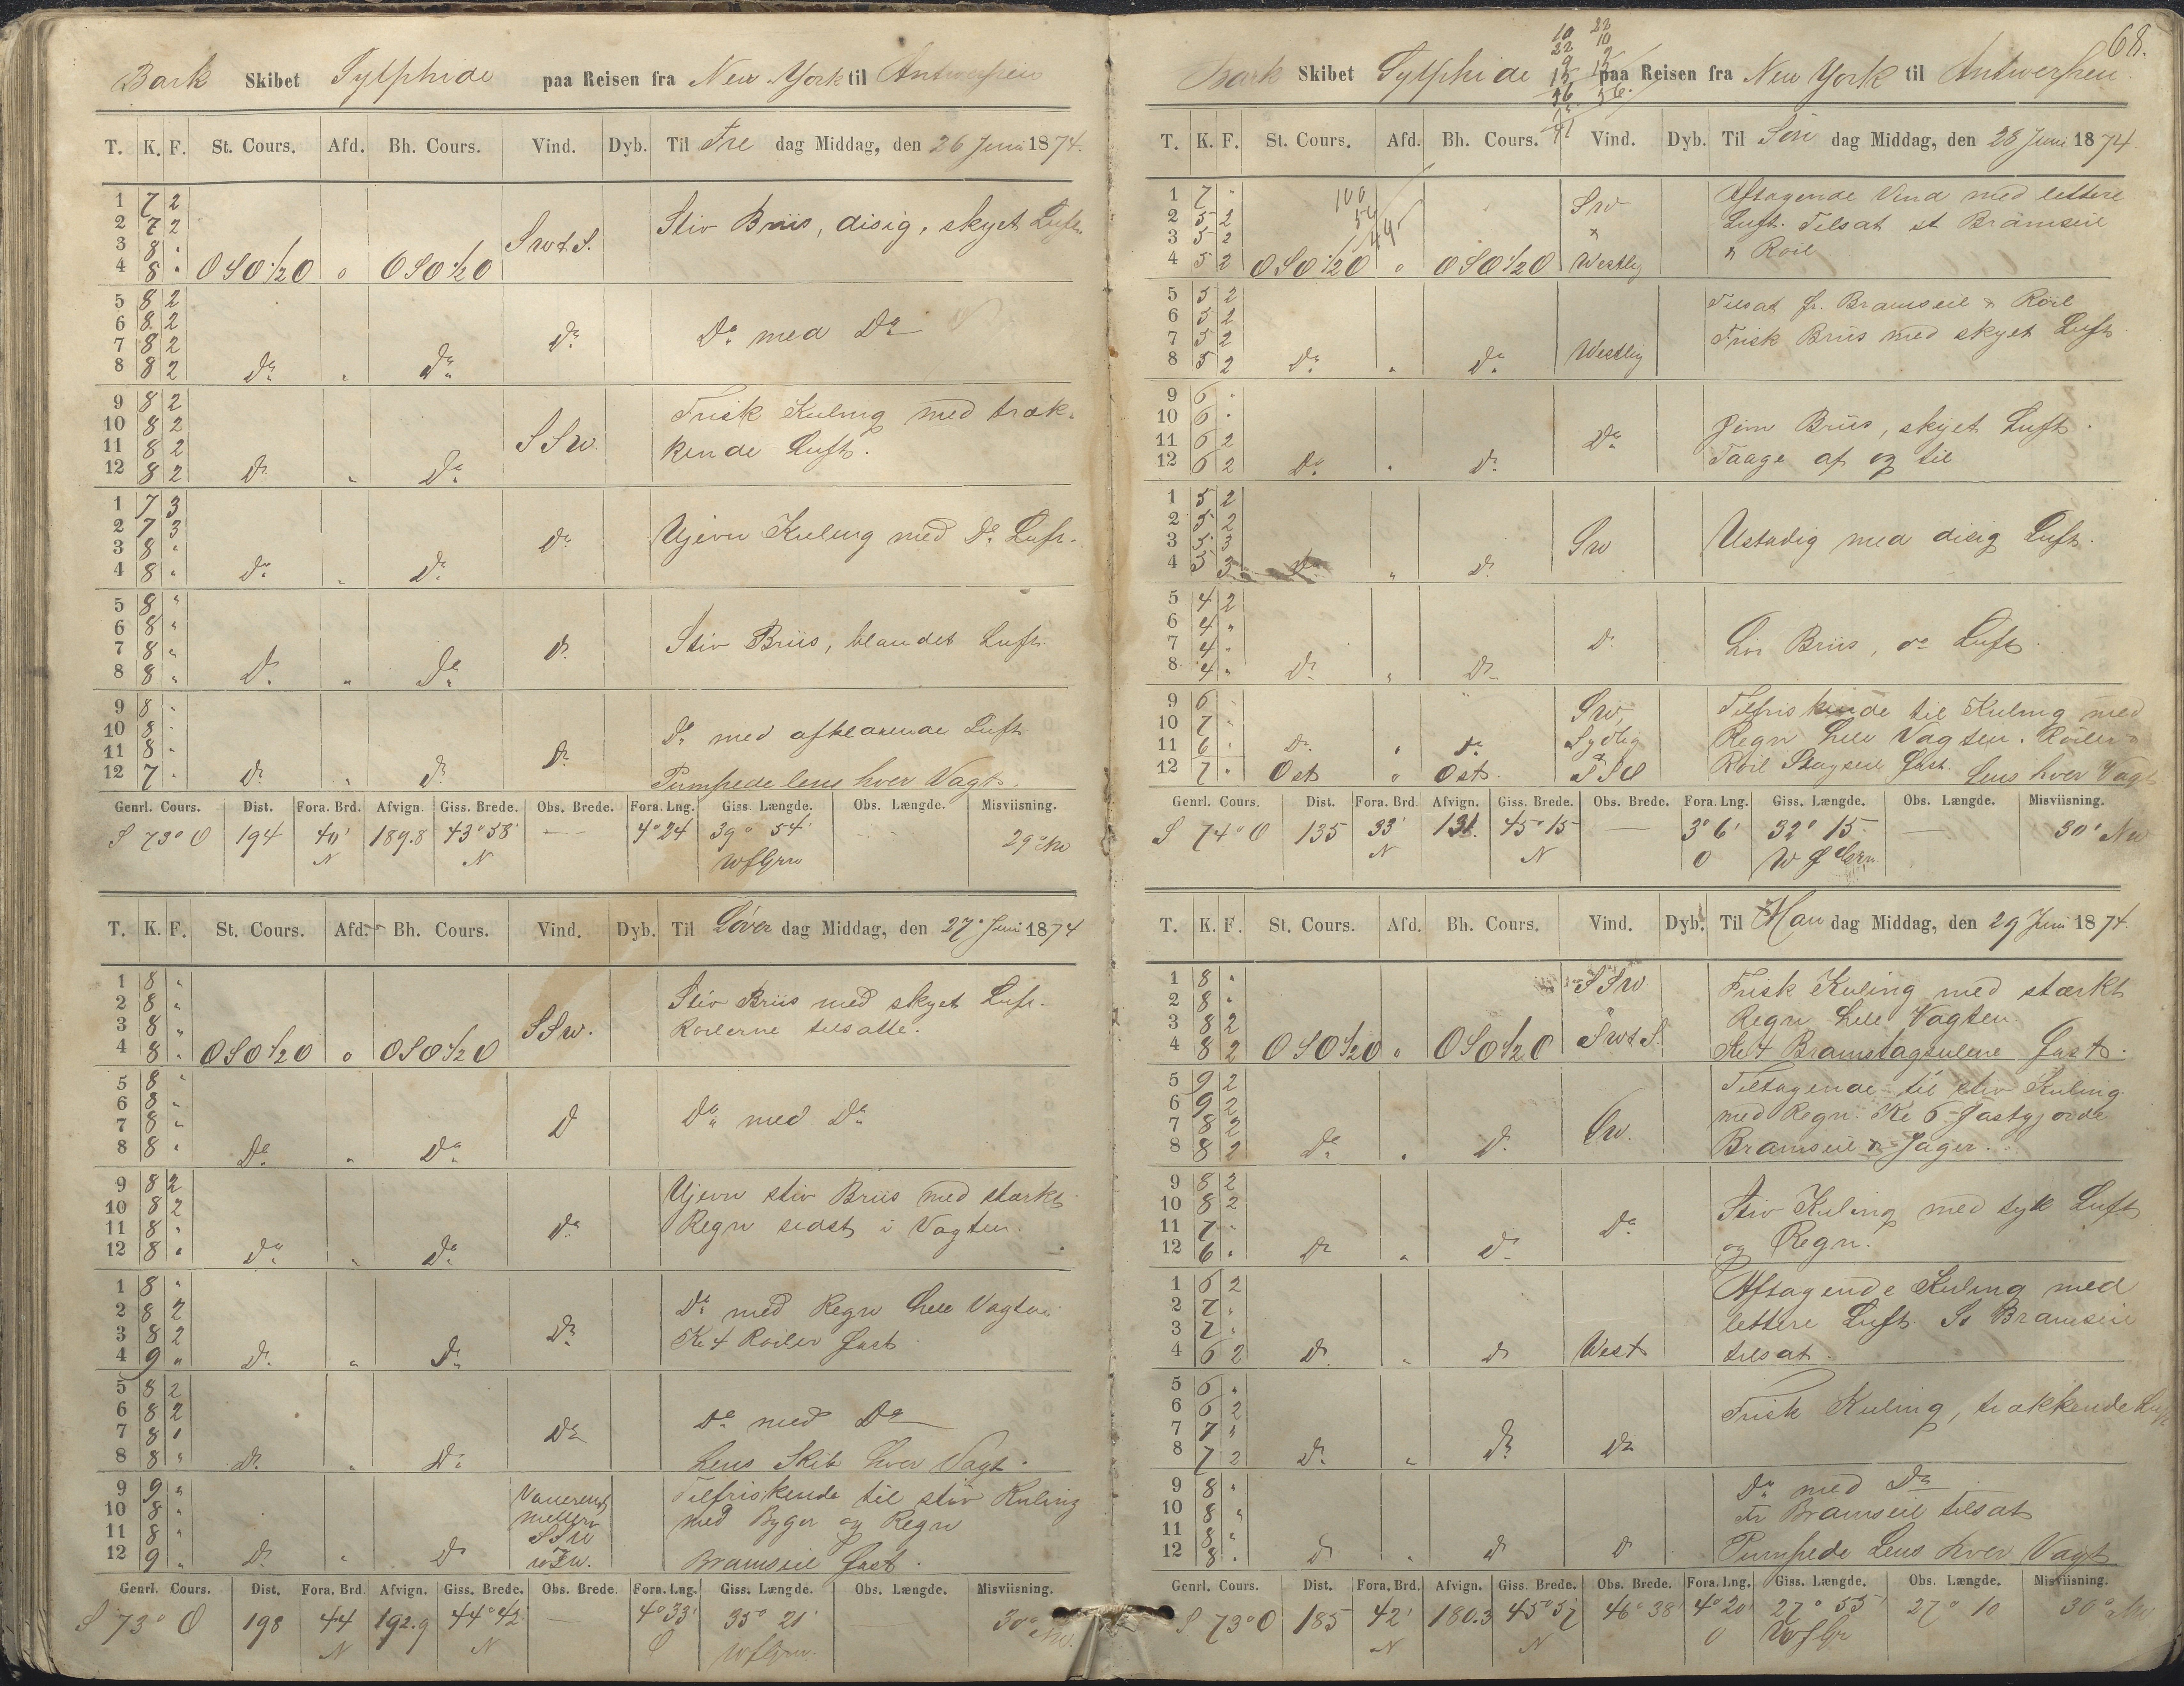 Bark Skibet Sylphide paa Reisen fra New York til Antwerpen
T. K. F. St. Cours. Afd. Bh. Cours. Vind. Dyb. Til Fre dag Middag, den 26 Juni 1874.
1 7 2
2 7 2 Stiv Briis, disig, skyet Luft.
3 8 " SW t S.
4 8 " OSO 1/2 O 0 OSO 1/2 O
5 8 2
6 8 2 Do med Do
7 8 2 Do
8 8 2 Do " Do
9 8 2 Frisk Kuling med træk-
10 8 2
11 8 2 SSW. kende Luft.
12 8 2 Do " Do
1 7 3
2 7 3 Ujevn Kuling med Do Luft.
3 8 " Do
4 8 " Do " Do
5 8 "
6 8 " Stiv Briis, blandet Luft
7 8 " Do
8 8 " Do " Do
9 8 "
10 8 " Do med afklarende Luft
11 8 " Do
12 7 " Do " Do Pumpede lens hver Vagt.
Genrl. Cours. Dist. Fora. Brd. Afvign. Giss. Brede. Obs. Brede. Fora. Lng. Giss. Længde. Obs. Længde. Misviisning.
S 73° O 194 40' 189.8 43° 58' — 4° 24 39° 54' 29° NW
N N W f Grw
T. K. F. St. Cours. Afd. Bh. Cours. Vind. Dyb. Til Löver dag Middag, den 27 Juni 1874
1 8 " Stiv Briis med skyet Luft.
2 8 " Roilerne tilsatte.
3 8 " SSW.
4 8 " OSO 1/2 O 0 OSO 1/2 O
5 8 "
6 8 " Do med Do
7 8 " Do
8 8 " Do " Do
9 8 2 Ujevn stiv Briis med stærkt
10 8 2 Regn sidst i Vagten.
11 8 " Do
12 8 " Do " Do
1 8 " Do med Regn hele Vagten
2 8 2 Kl 4 Roiler fast
3 8 2 Do
4 9 " Do " Do
5 8 2
6 8 2 Do med Do
7 8 " Do
8 8 " Do " Do Lens Skib hver Vagt.
9 9 " Tilfriskende til stiv Kuling
10 8 " mellem med Byger og Regn
11 8 " SSW
12 9 " Do " Do Bramseil fast.
Genrl. Cours. Dist. Fora. Brd. Afvign. Giss. Brede. Obs. Brede. Fora. Lng. Giss. Længde. Obs. Længde. Misviisning.
S 73° O 198 44 192.9 44° 42' — 4° 33' 35° 21' — 30° NW.
N N O W f Grw.
68.
10 22
22 10
9 9
15 15
56 56.
Bark Skibet Sylphide paa Reisen fra New York til Antwerpen.
T. K. F. St. Cours. Afd. Bh. Cours. Vind. Dyb. Til Søn dag Middag, den 28 Juni 1874
1 7 " 100 SW Aftagende Vind med lettere
2 5 2 54 Luft. Tilsat st Bramseil
3 5 2 &
4 5 2 OSO 1/2 O 0 OSO 1/2 O Westlig & Roil
5 5 2 Tilsat fr. Bramseil & Roil
6 5 2 Frisk Briis med skyet Luft
7 5 2
8 5 2 Do " Do Westlig
9 6 "
10 6 " Jevn Briis, skyet Luft.
11 6 2 Do
12 6 2 Do " Do Taage af og til
1 5 2
2 5 2 Ustadig med disig Luft.
3 5 3 SW
4 5 3 Do " Do
5 4 2
6 4 "
7 4 " Do Lør Briis, do Luft.
8 4 " Do " Do
9 6 " SW, Tilfriskende til Kuling med
10 7 " Sydlig Regn hele Vagten. Roiler &
11 6 " Do " Do
12 7 " Ost 0 Ost. SSO Roil Stagseil fast. Lens hver Vagt
Genrl. Cours. Dist. Fora. Brd. Afvign. Giss. Brede. Obs. Brede. Fora. Lng. Giss. Længde. Obs. Længde. Misviisning.
S 74° O 135 33' 131. 45° 15 — 3° 6' 32° 15 — 30° NW
N N O W f Grw.
T. K. F. St. Cours. Afd. Bh. Cours. Vind. Dyb. Til Man dag Middag, den 29 Juni 1874.
1 8 " SSW Frisk Kuling med stærkt
2 8 " Regn hele Vagten.
3 8 2
4 8 2 OSO 1/2 O 0 OSO 1/2 O SW t S. Kl 4 Bramstagseilene fast.
5 9 2 Tiltagende til stiv Kuling
6 9 2 med Regn. Kl 6 fastgjorde
7 8 2 SW.
8 8 2 Do " Do Bramseil & Jager.
9 8 2
10 8 2 Stiv Kuling med tyk Luft
11 7 " Do
12 6 " Do " Do og Regn.
1 6 2 Aftagende Kuling med
2 7 " lettere Luft. St Bramseil
3 7 "
4 6 2 Do " Do West tilsat.
5 6 "
6 6 2 Frisk Kuling, trækkende Luft
7 7 "
8 7 2 Do " Do Do
9 8 " Do med Do
10 8 " Fr Bramseil tilsat
11 8 "
12 8 " Do " Do Do Pumpede Lens hver Vagt
Genrl. Cours. Dist. Fora. Brd. Afvign. Giss. Brede. Obs. Brede. Fora. Lng. Giss. Længde. Obs. Længde. Misviisning.
S 73° O 185 42' 180.3 45° 57 46° 38' 4° 20' 27° 55' 27° 10 30° NW
N N O W f Gr